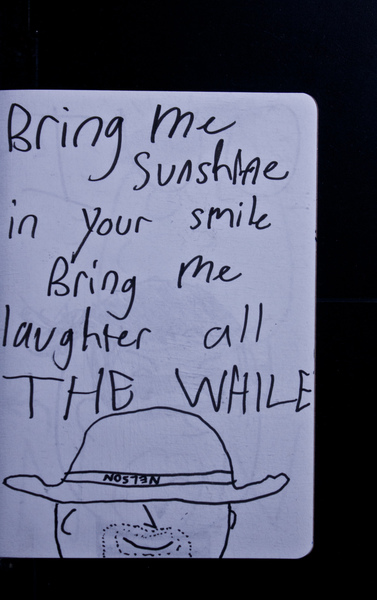 Bring me
Sunshine
in your smile
Bring me
laughter all
THE WHILE
NELSON